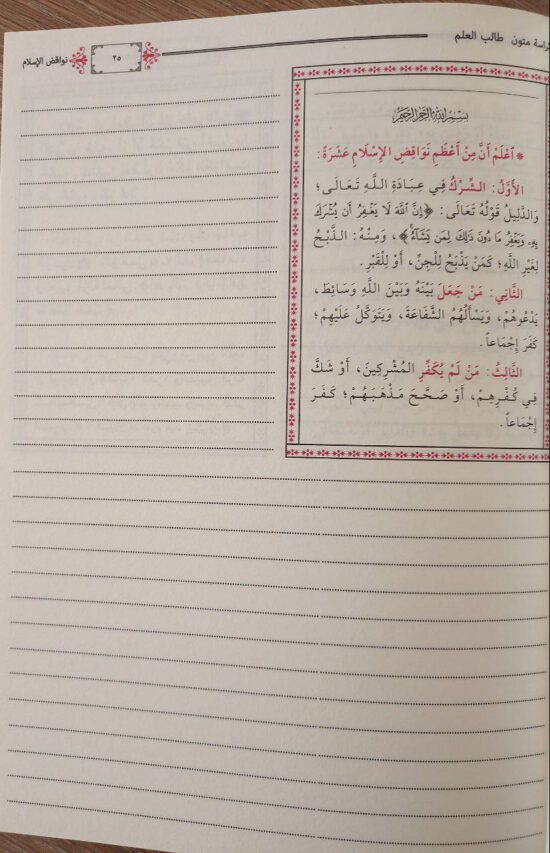 كراسة متون طالب العلم
٢٥
نواقض الإسلام
بِسْمِ اللهِ الرَّحْمَنِ الرَّحِيمِ
* اعْلَمْ أَنَّ مِنْ أَعْظَمِ نَوَاقِضِ الإِسْلَامِ عَشَرَةً:
الأَوَّلُ: الشِّرْكُ فِي عِبَادَةِ اللهِ تَعَالَى؛
وَالدَّلِيلُ قَوْلُهُ تَعَالَى: ﴿إِنَّ اللَّهَ لَا يَغْفِرُ أَن يُشْرَكَ
بِهِ وَيَغْفِرُ مَا دُونَ ذَلِكَ لِمَن يَشَاءُ﴾، وَمِنْهُ: الذَّبْحُ
لِغَيْرِ اللهِ؛ كَمَنْ يَذْبَحُ لِلْجِنِّ، أَوْ لِلْقَبْرِ.
الثَّانِي: مَنْ جَعَلَ بَيْنَهُ وَبَيْنَ اللهِ وَسَائِطَ،
يَدْعُوهُمْ، وَيَسْأَلُهُمُ الشَّفَاعَةَ، وَيَتَوَكَّلُ عَلَيْهِمْ؛
كَفَرَ إِجْمَاعاً.
الثَّالِثُ: مَنْ لَمْ يُكَفِّرِ المُشْرِكِينَ، أَوْ شَكَّ
فِي كُفْرِهِمْ، أَوْ صَحَّحَ مَذْهَبَهُمْ؛ كَفَرَ
إِجْمَاعاً.